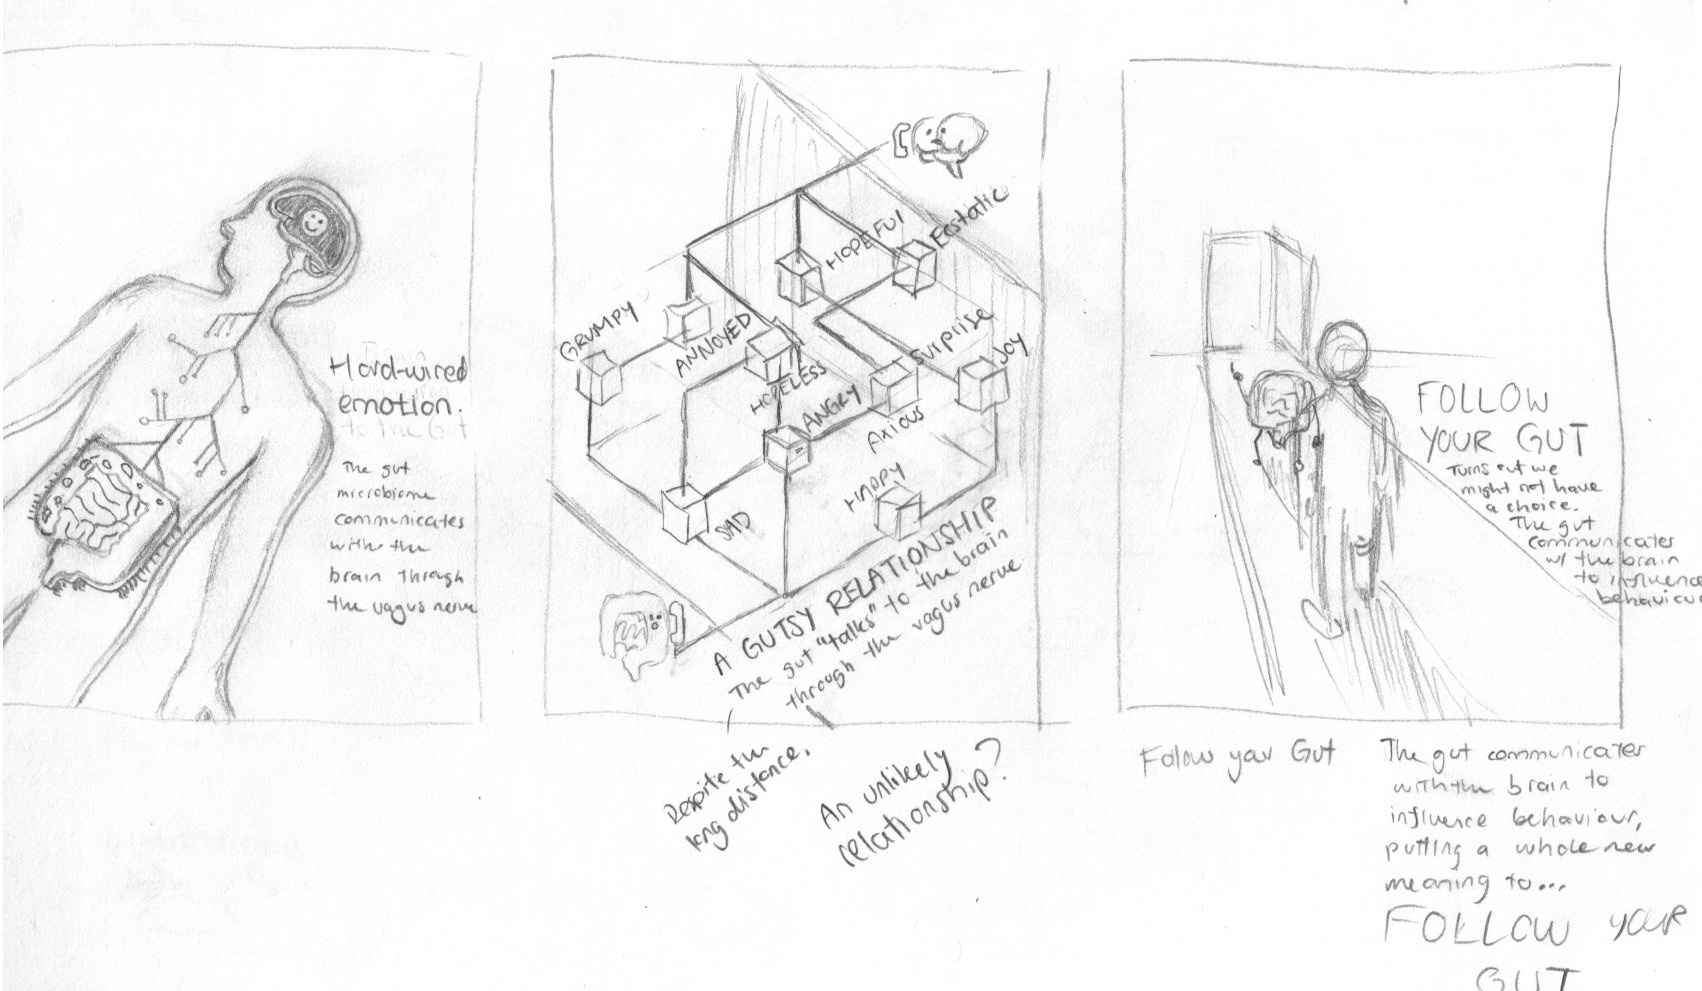 Hard-wired
emotion.
to the Gut
The gut
microbiome
communicates
with the
brain through
the vagus nerve
HOPEFUL
Ecstatic
GRUMPY
ANNOYED
HOPELESS
Surprise
JOY
ANGRY
Axious
HAPPY
SAD
A GUTSY RELATIONSHIP
The gut "talks" to the brain
through the vagus nerve
Despite the
long distance,
An unlikely
relationship?
FOLLOW
YOUR GUT
Turns out we
might not have
a choice.
The gut
communicates
w/ the brain
to influence
behaviour
Follow your Gut
The gut communicates
with the brain to
influence behaviour,
putting a whole new
meaning to...
FOLLOW YOUR
GUT